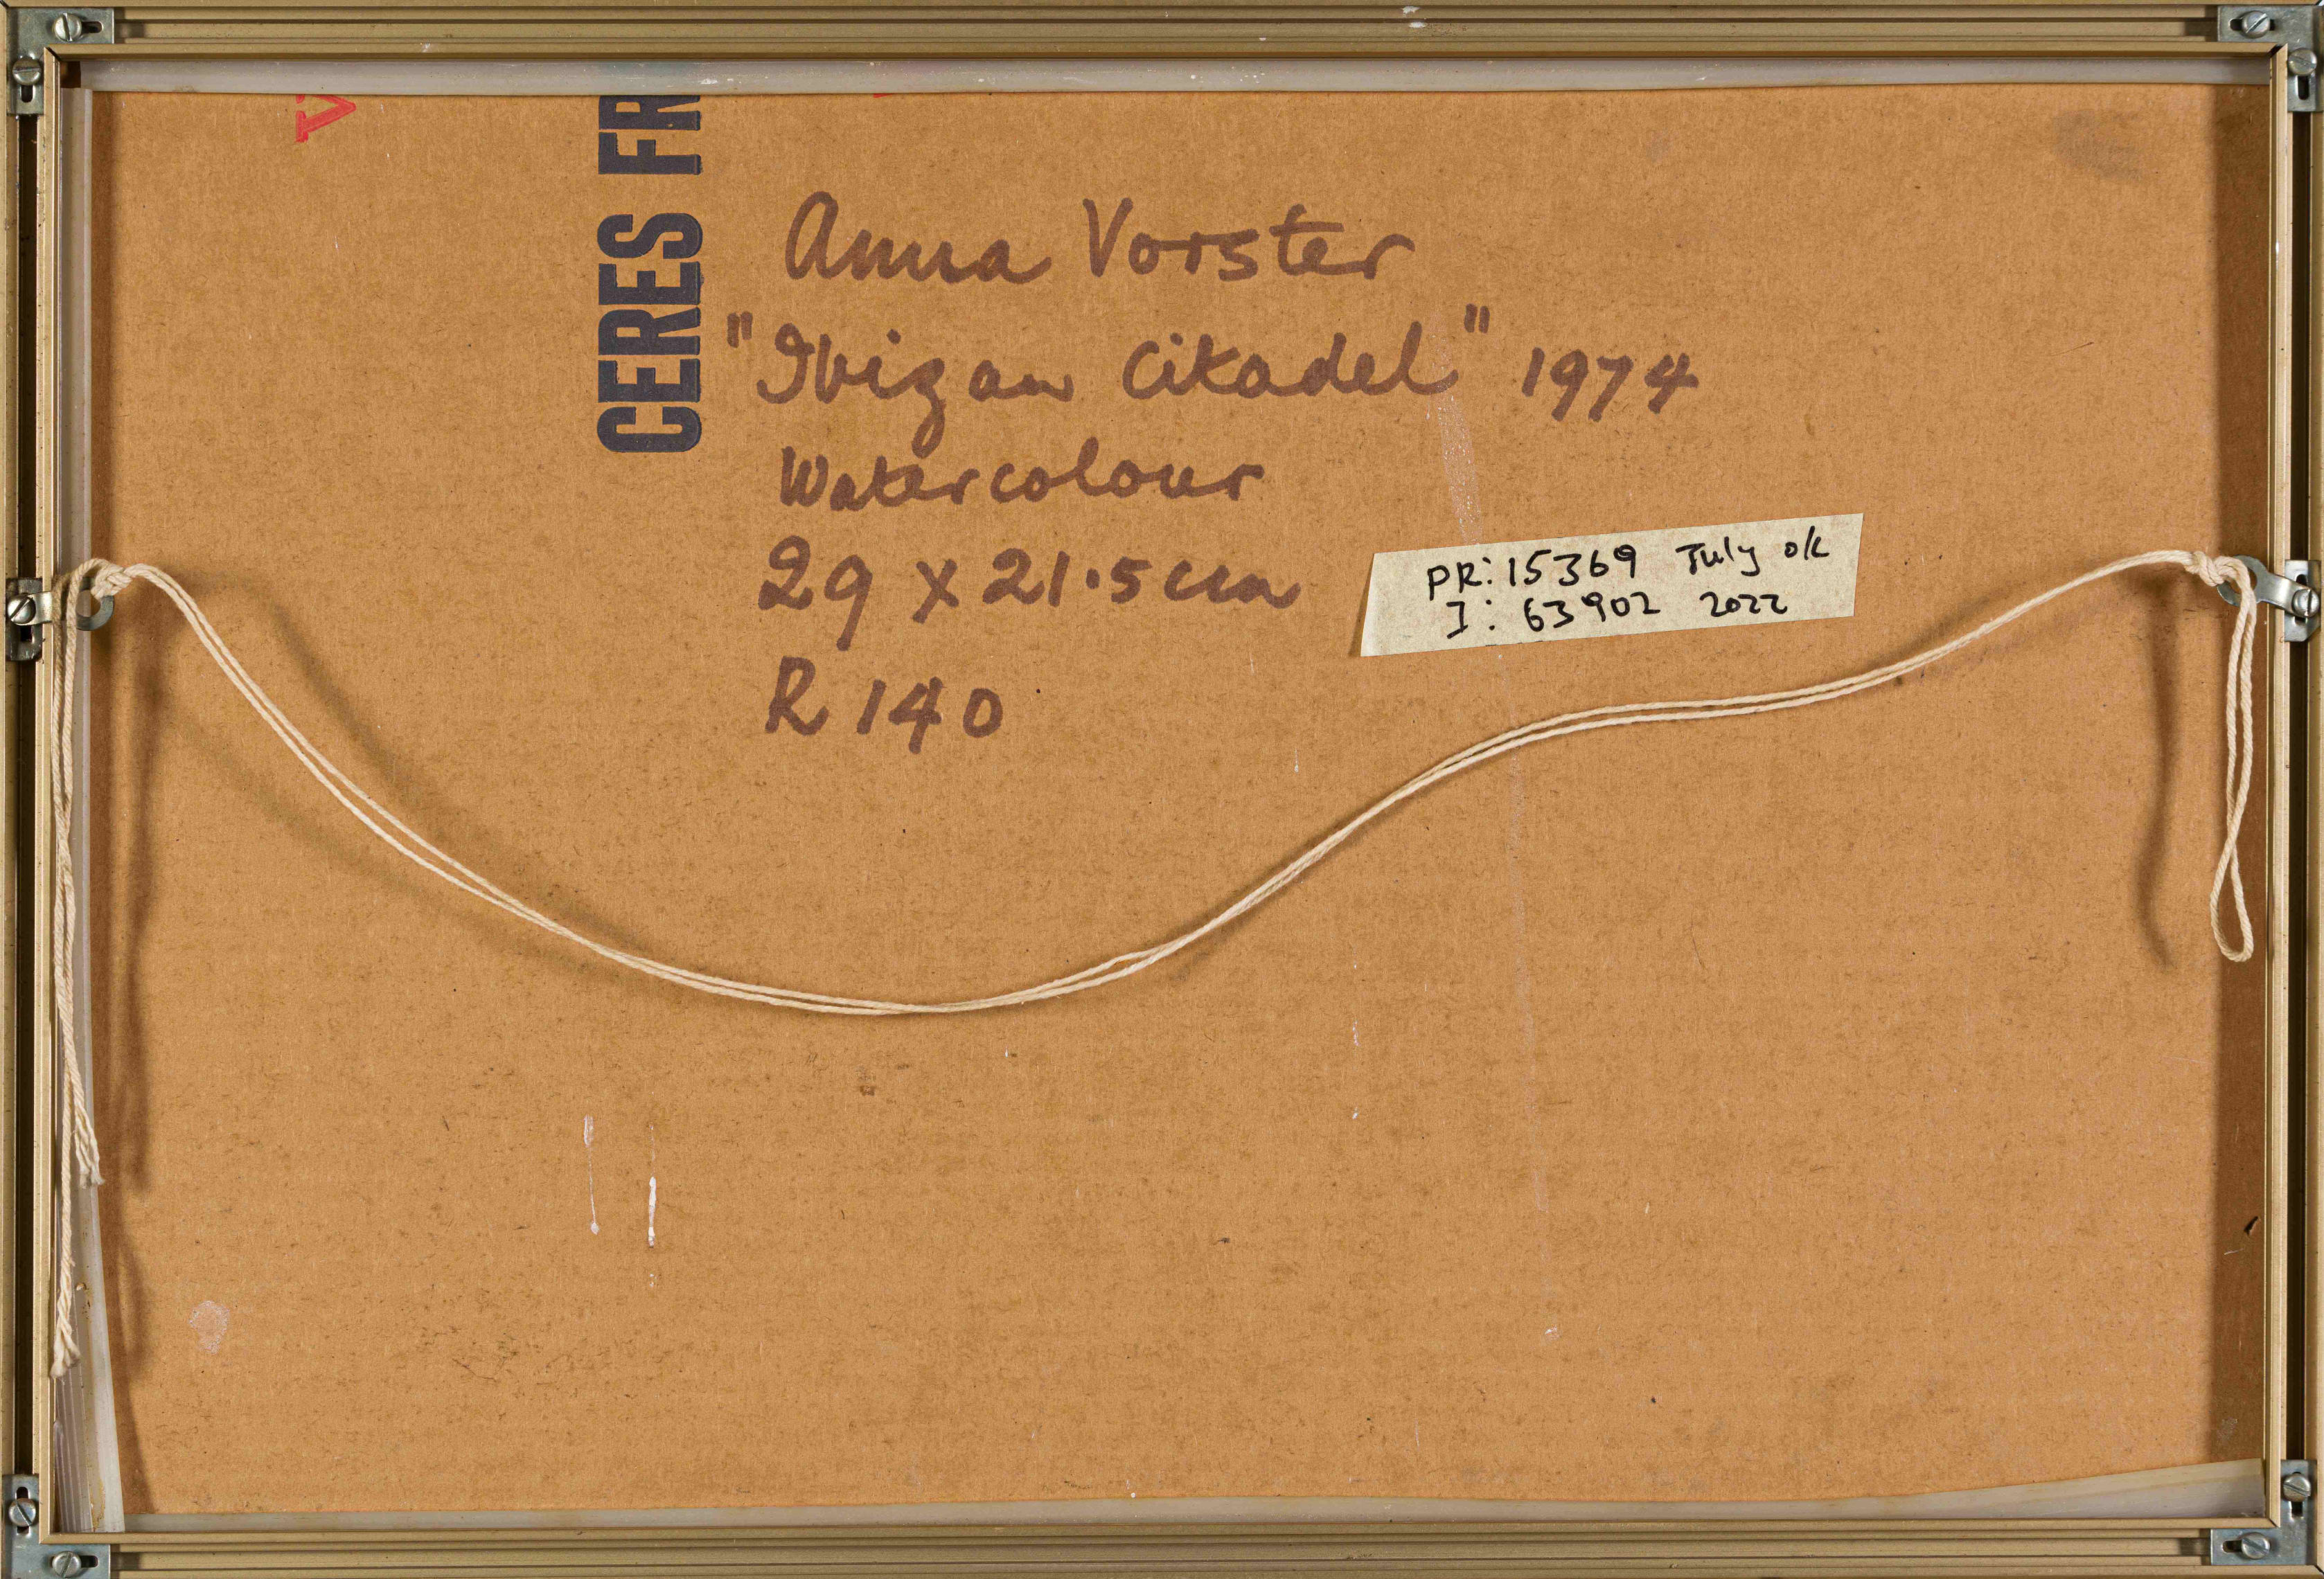 CERES FR
Anna Vorster
"Ibizan Citadel" 1974
Watercolour
29 x 21.5 cm
R 140
PR: 15369 July ok
I: 63902 2022